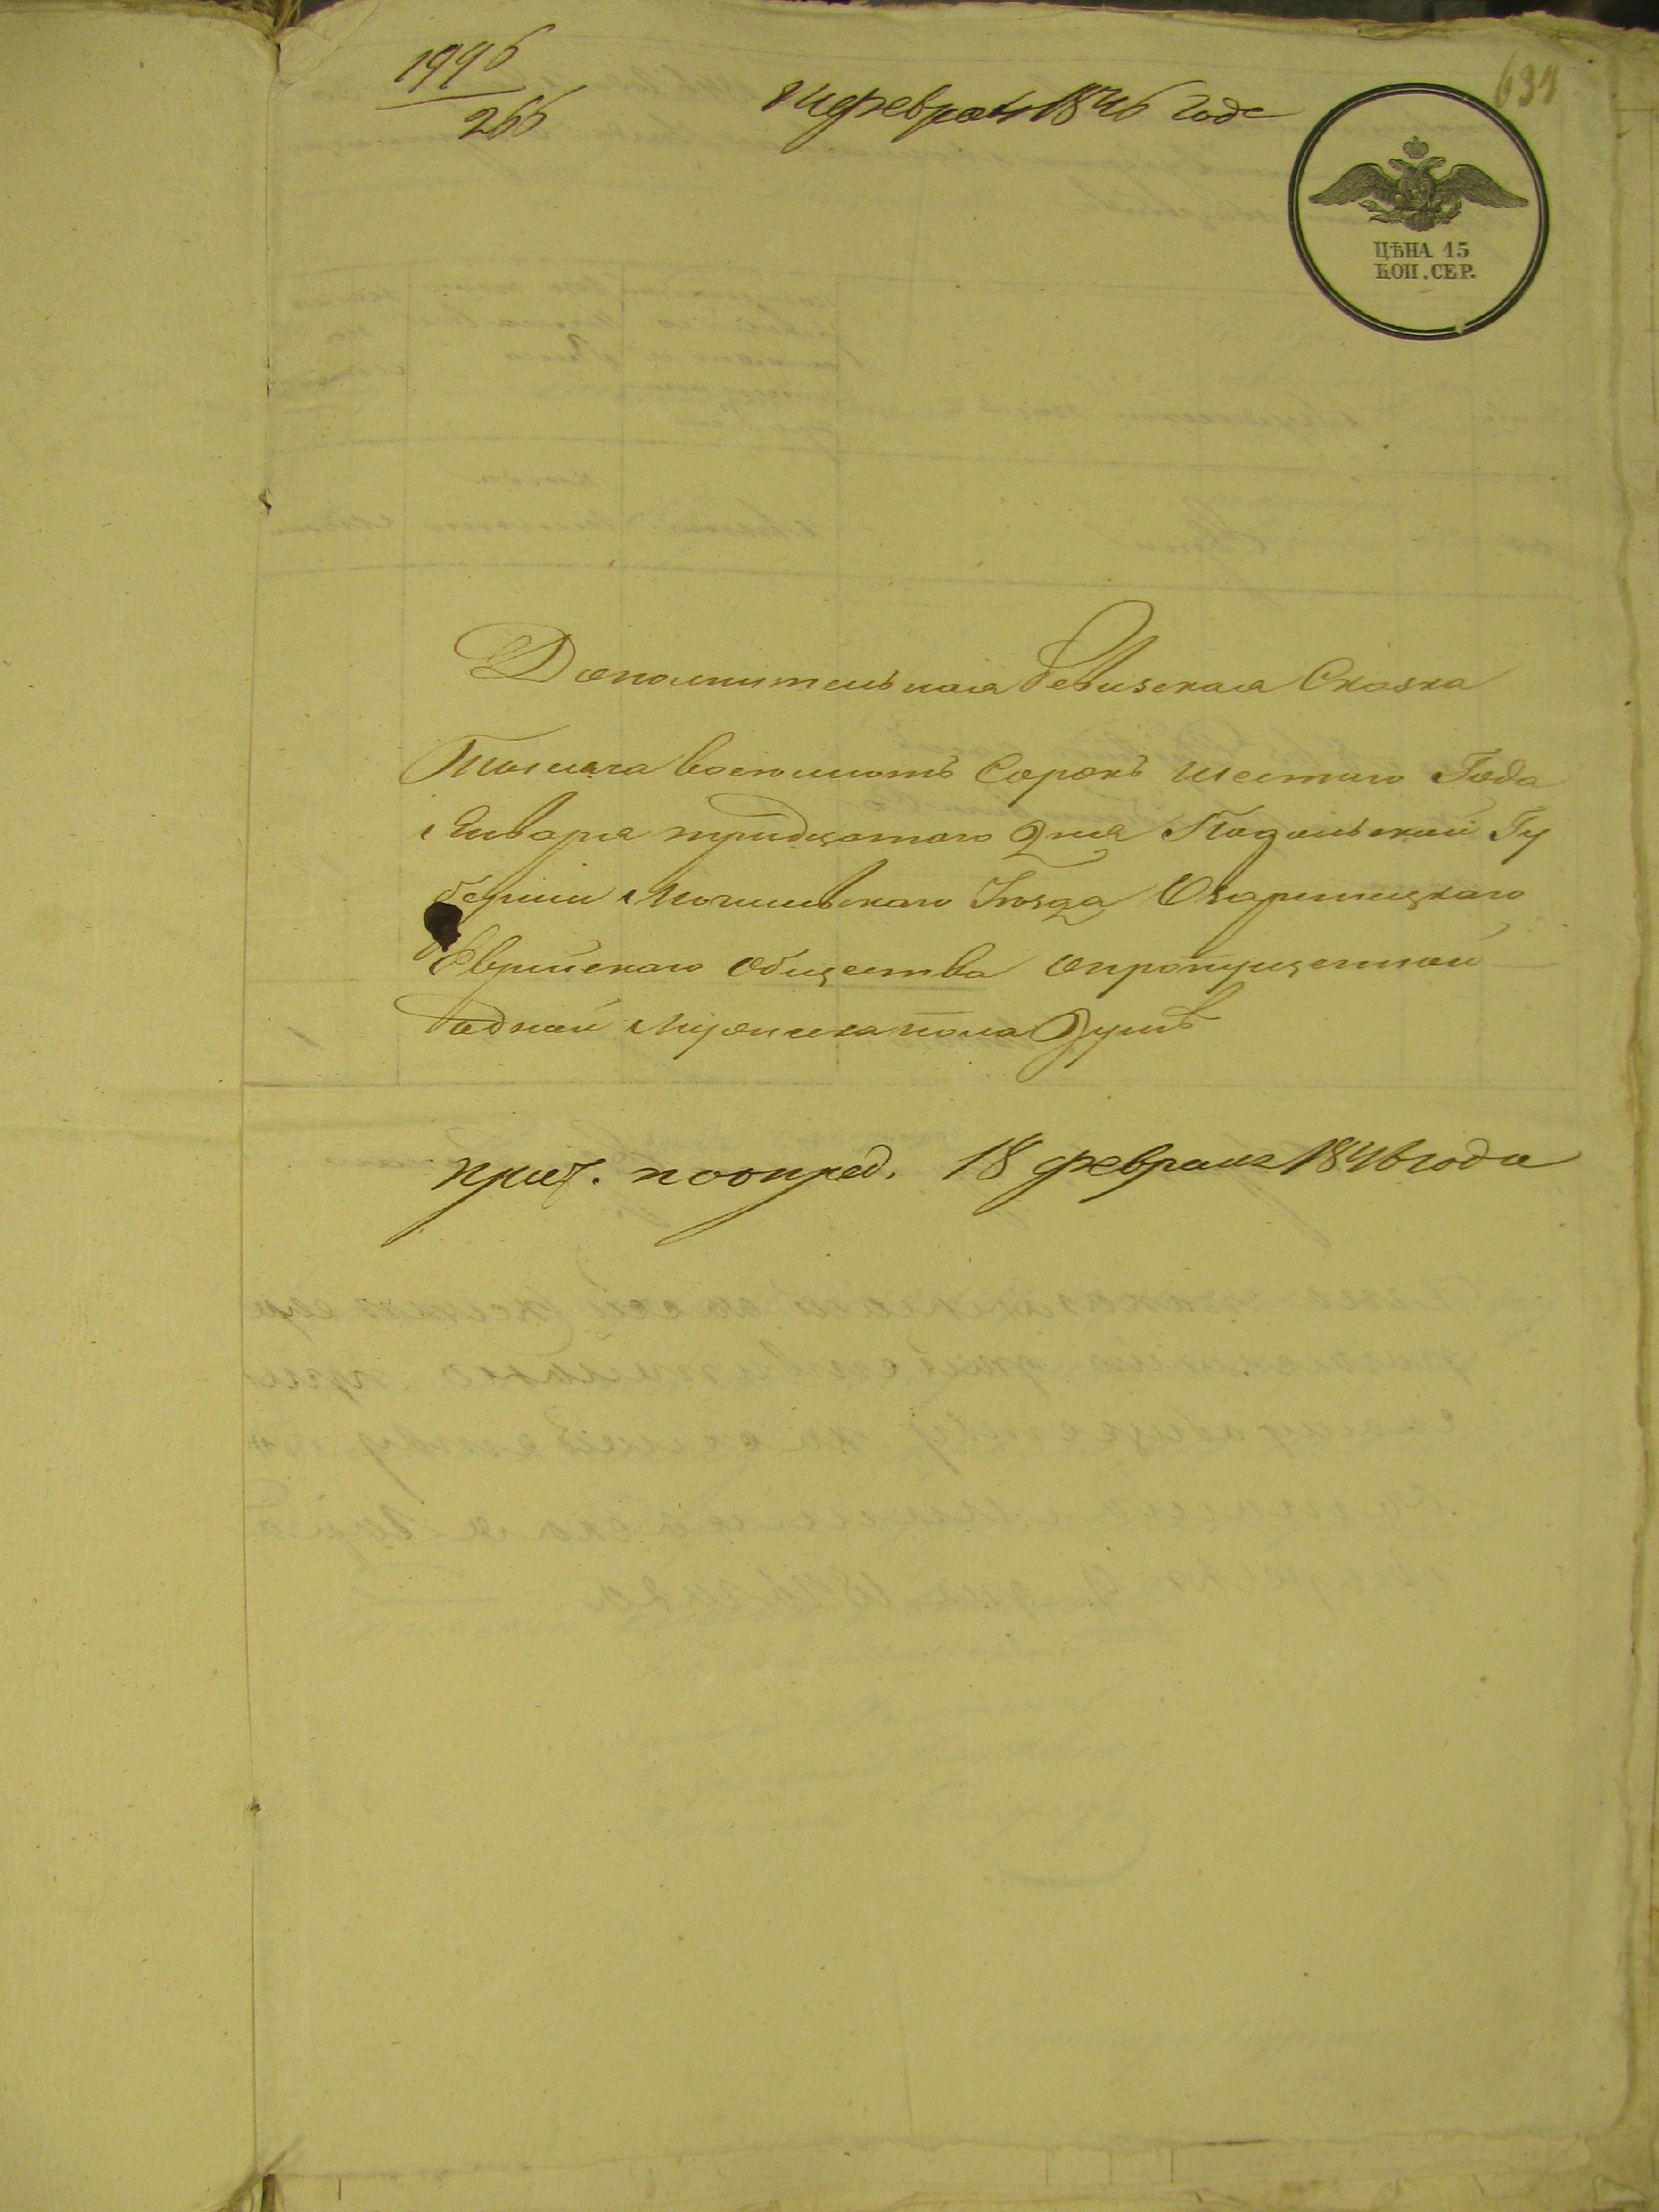 1996
266
февраля 1846 года
634
ЦѢНА 15
КОП. СЕР.
Дополнительная Ревизская Сказка
Тысяча восемьсотъ Сорокъ шестаго Года
Января тридцатаго Дня Подольской Гу
берніи Могилевскаго Уѣзда Озаринецкаго
Еврейскаго Общества опропущенной
одной Мужеска пола Душѣ
поопред. 18 февраля 1846 года